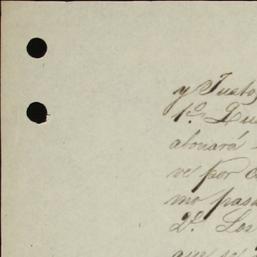 y Justo
1º. Que
abonará
ve por c
mo pasa
2º. Los
que se